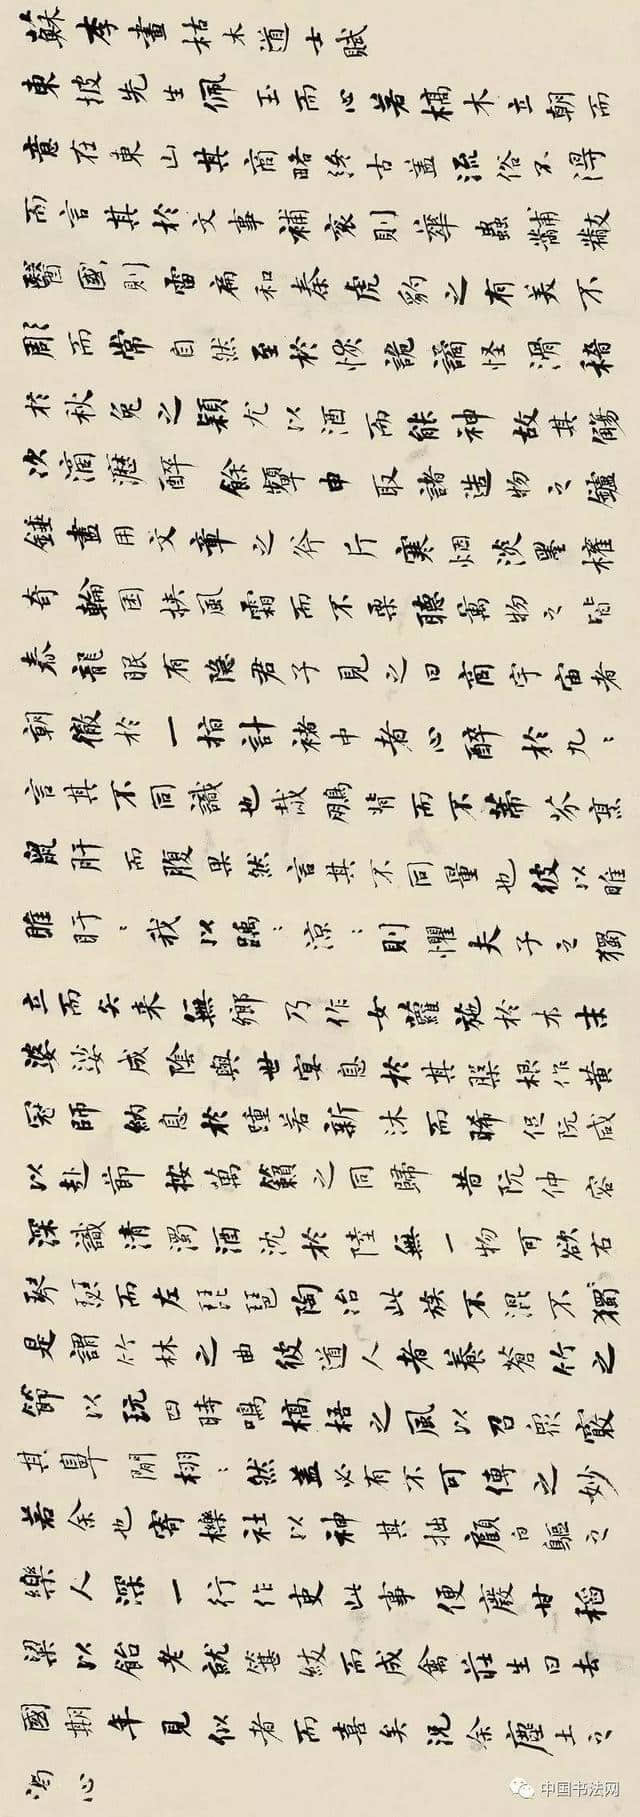 蘇李畫枯木道士賦
東坡先生佩玉而心若槁木立朝而
意在東山其商略終古蓋流俗不得
而言其於文事補袞則華蟲黼黻
醫國則雷扁和秦虎豹之有美不
彫而常自然至於恢詭譎怪滑稽
於秋兔之穎尤以酒而能神故其觴
次滴瀝醉餘顰申取諸造物之鑪
錘盡用文章之斧斤寒烟淡墨權
奇輪囷挾風霜而不栗聽萬物之皆
春龍眠有隱君子見之曰商宇宙者
朝徹於一指計褚中者心醉於九〻
言其不同識也哉鵬背而不蔕芥烹
鼠肝而腹果然言其不同量也彼以睢
睢盱〻我以踽〻涼〻則懼夫子之獨
立而矢来無鄉乃作女蘿施於木末
婆娑成陰與世宴息於其槃根作黃
冠師納息於踵若新沐而晞促阮咸
以赴節按萬籟之同歸昔阮仲容
深識清濁酒沈於陸無一物可欲右
琴瑟而左琵琶陶冶此族不混不獨
是謂竹林之曲彼道人者養蒼竹之
節以玩四時鳴槁梧之風以召衆竅
其鼻間栩〻然蓋必有不可傳之妙
若余也寄櫟社以神其拙顧白鷗之
樂人深一行作吏此事便廢甘稻
粱以飴老就簪紱而成禽莊生曰去
國期年見似者而喜矣況余塵土之
渴心
中国书法网